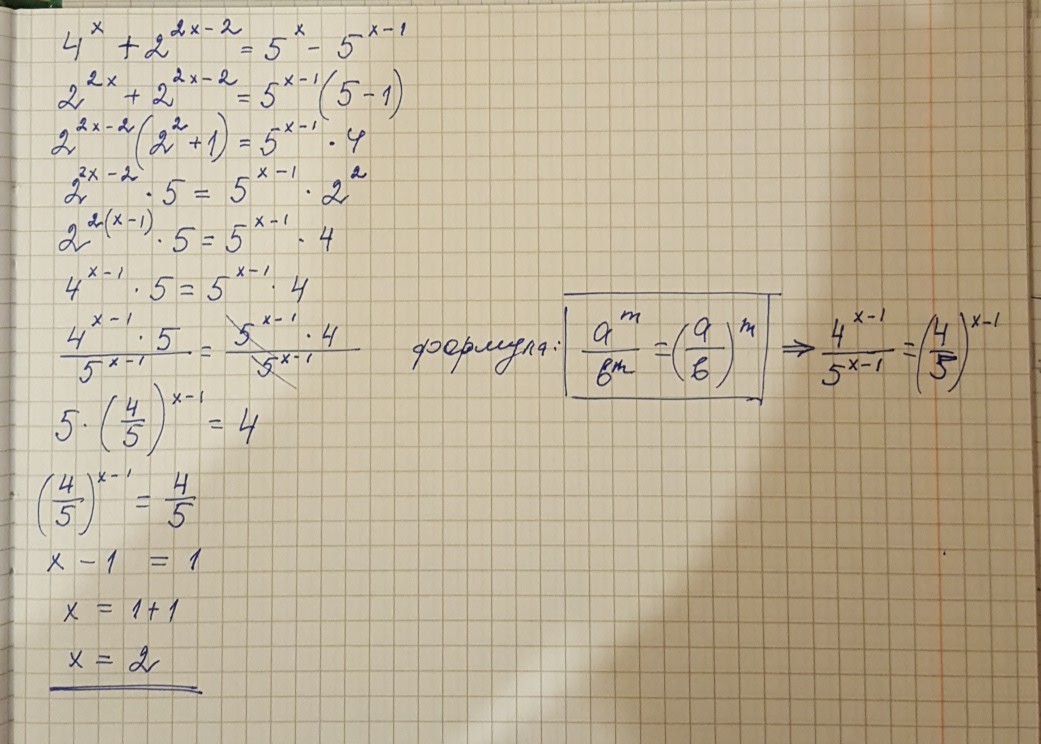 4^x + 2^(2x-2) = 5^x - 5^(x-1)
2^(2x) + 2^(2x-2) = 5^(x-1) (5-1)
2^(2x-2) (2^2 + 1) = 5^(x-1) · 4
2^(2x-2) · 5 = 5^(x-1) · 2^2
2^(2(x-1)) · 5 = 5^(x-1) · 4
4^(x-1) · 5 = 5^(x-1) · 4
(4^(x-1) · 5)/(5^(x-1)) = (5^(x-1) · 4)/(5^(x-1)) формула: a^m/в^m = (a/в)^m ⇒ 4^(x-1)/5^(x-1) = (4/5)^(x-1)
5 · (4/5)^(x-1) = 4
(4/5)^(x-1) = 4/5
x - 1 = 1
x = 1+1
x = 2